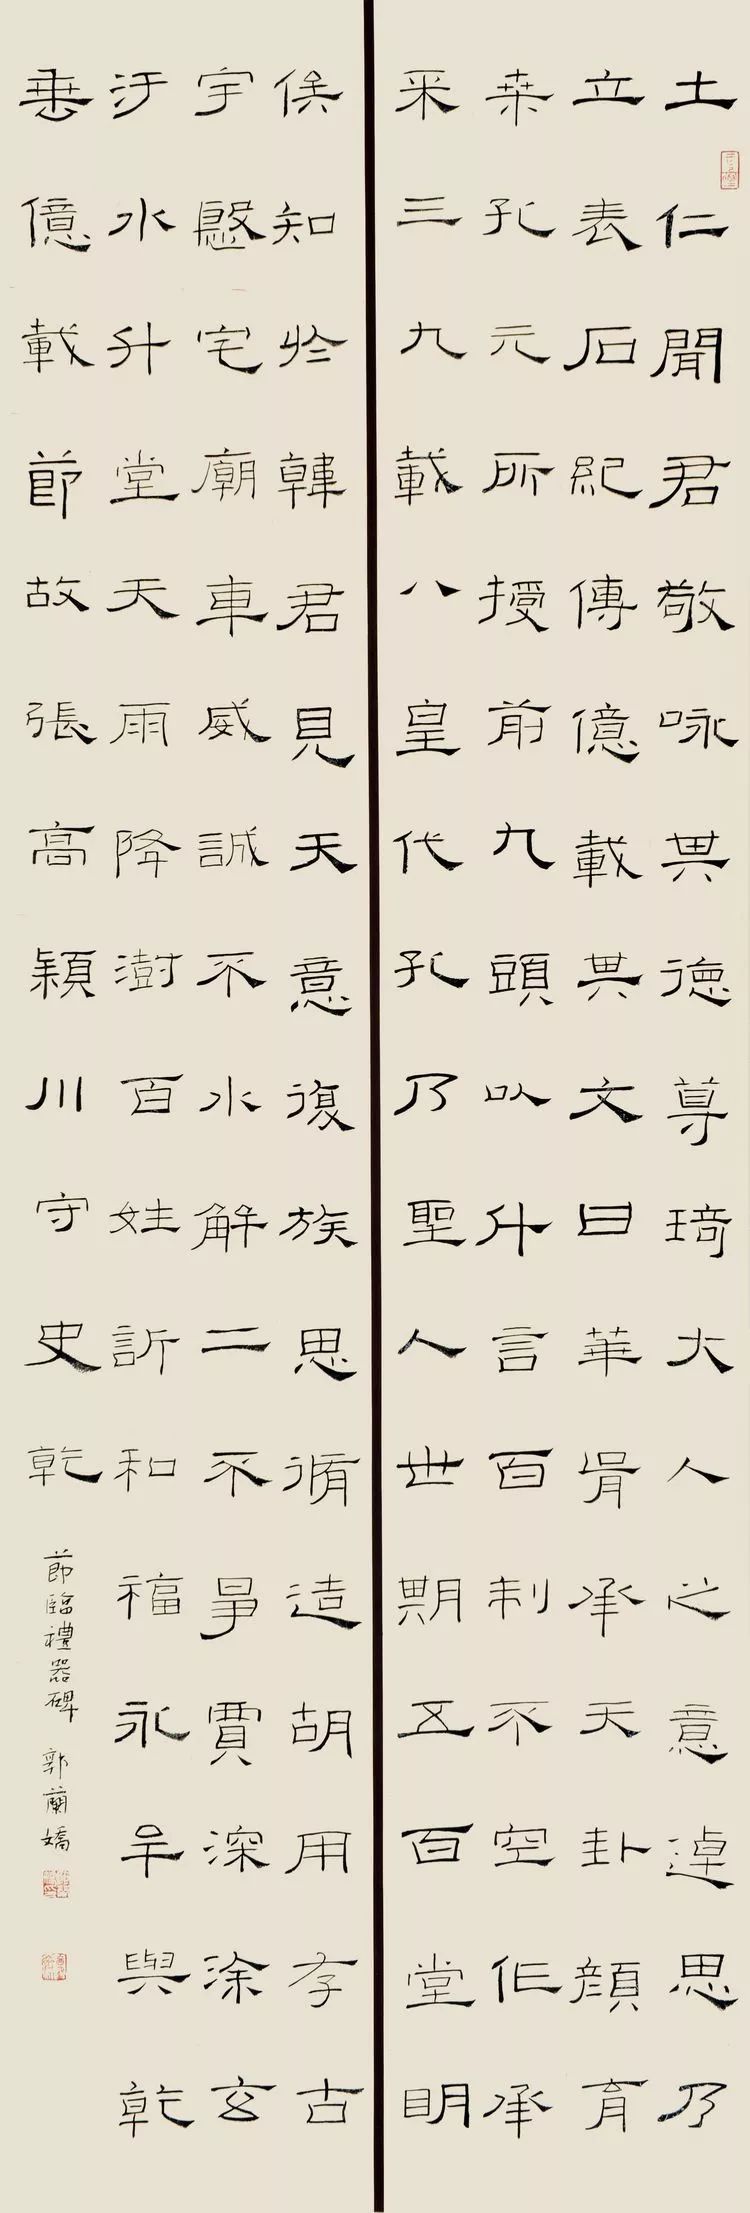 土仁聞君敬咏其德尊琦大人之意逴思乃
立表石紀傳億載其文曰華胥承天卦顏育
桒孔元所授前九頭以什言百制不空作承
采三九載八皇代孔乃聖人世期五百堂眀
侯知於韓君見天意復族思脩造胡用存古
宇慇宅廟車威誠不水解二不爭賈深涂玄
汙水升堂天雨降澍百姓訢和福永牟與乾
垂億載節故張高穎川守史乾
節臨禮器碑 郭蘭嬌